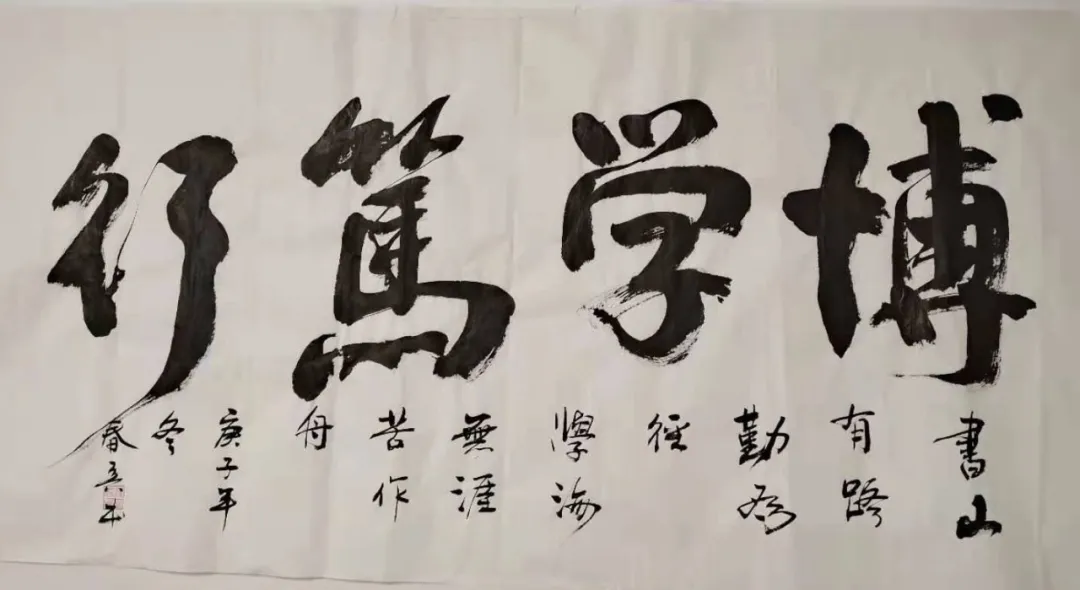 博學篤行
書山
有路
勤為
徑
學海
無涯
苦作
舟
庚子年
冬
春